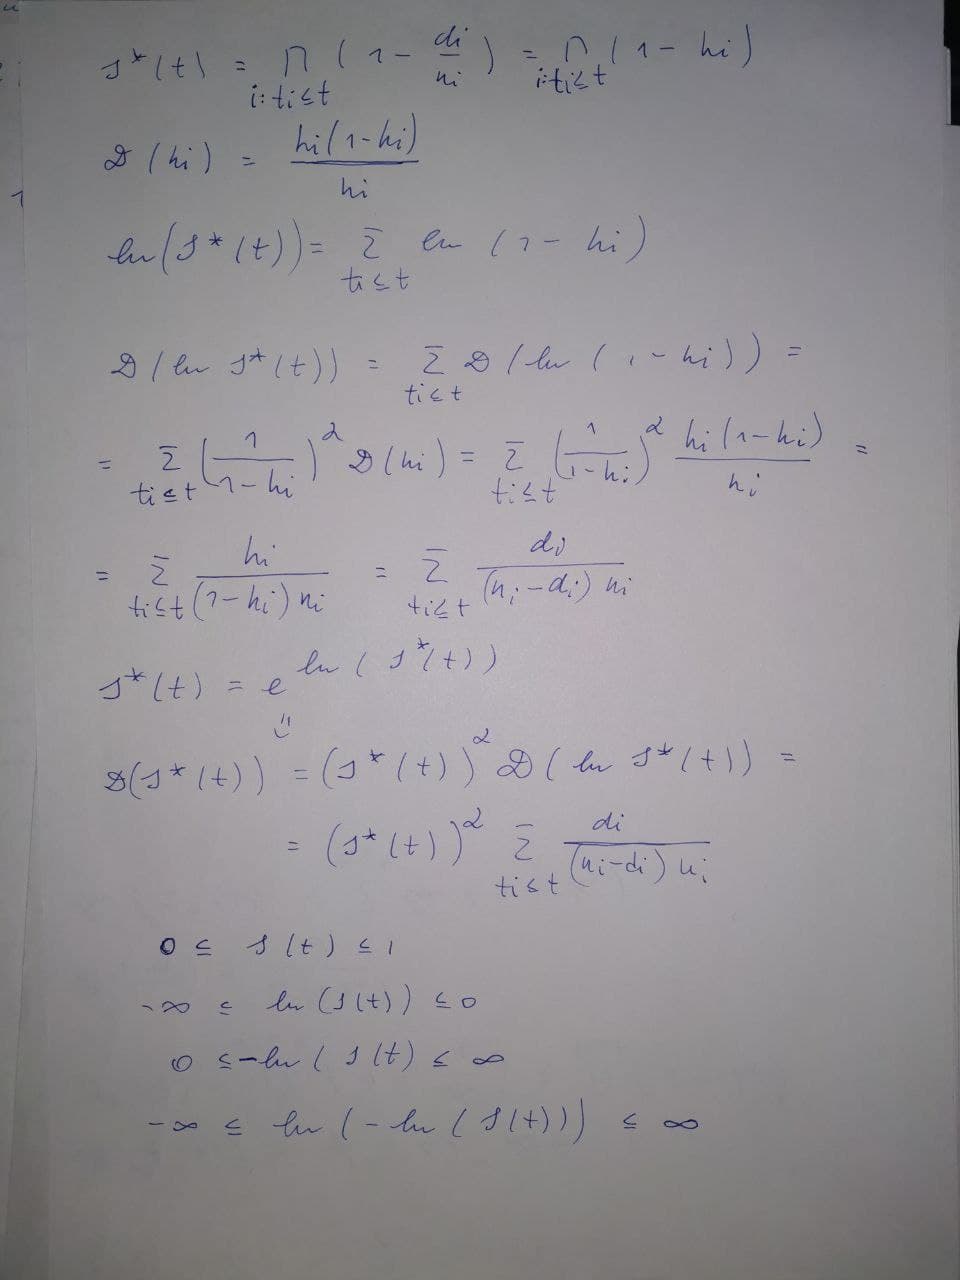 S*(t) = ∏_{i: ti ≤ t} (1 - di/ni) = ∏_{i: ti ≤ t} (1 - hi)
D(hi) = hi(1-hi)/ni
ln(S*(t)) = Σ_{ti ≤ t} ln(1 - hi)
D(ln S*(t)) = Σ_{ti ≤ t} D(ln(1 - hi)) =
= Σ_{ti ≤ t} (1/(1-hi))^2 D(hi) = Σ_{ti ≤ t} (1/(1-hi))^2 hi(1-hi)/ni =
= Σ_{ti ≤ t} hi/((1-hi) ni) = Σ_{ti ≤ t} di/((ni-di) ni)
S*(t) = e^{ln(S*(t))}
D(S*(t)) = (S*(t))^2 D(ln S*(t)) =
= (S*(t))^2 Σ_{ti ≤ t} di/((ni-di) ni)
0 ≤ S(t) ≤ 1
-∞ ≤ ln(S(t)) ≤ 0
0 ≤ -ln(S(t) ≤ ∞
-∞ ≤ ln(-ln(S(t))) ≤ ∞